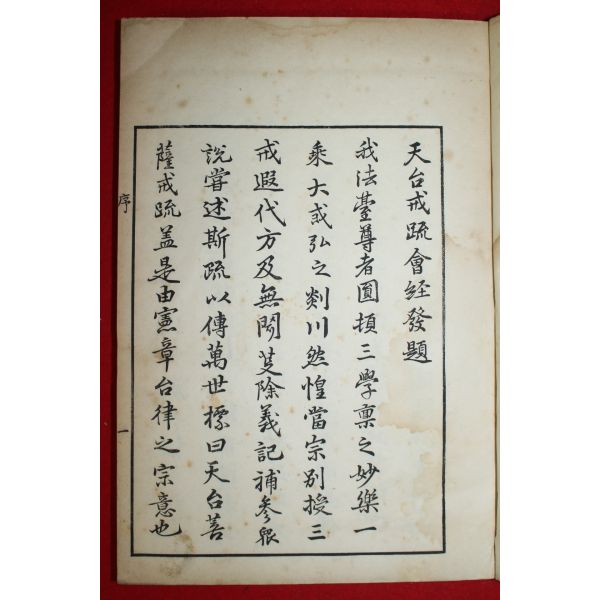 天台戒疏會經發題
我法臺尊者圓頓三學稟之妙樂一
乘大戒弘之剡川然惶當宗別授三
戒遐代方及無聞芟除義記補參眾
說嘗述斯疏以傳萬世標曰天台菩
薩戒疏盖是由憲章台律之宗意也
序
一